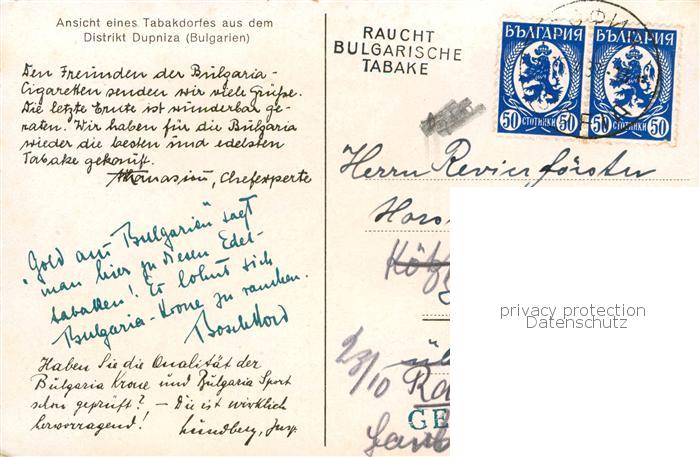 Ansicht eines Tabakdorfes aus dem
Distrikt Dupniza (Bulgarien)
Den Freunden der Bulgaria-
Cigaretten senden wir viele Grüße.
Die letzte Ernte ist wunderbar ge-
raten. Wir haben für die Bulgaria
wieder die besten und edelsten
Tabake gekauft.
Athanasiu, Chefexperte
"Gold aus Bulgarien" sagt
man hier zu diesen Edel-
tabaken! Es lohnt sich
Bulgaria-Krone zu rauchen.
Haben Sie die Qualität der
Bulgaria Krone und Bulgaria Sport
schon geprüft? – Die ist wirklich
hervorragend!
Lundberg,
RAUCHT
BULGARISCHE
TABAKE
БЪЛГАРИЯ БЪЛГАРИЯ
50 СТОТИНКИ 50 50 СТОТИНКИ 50
Herrn Revierförster
privacy protection
Datenschutz
23/10
GE